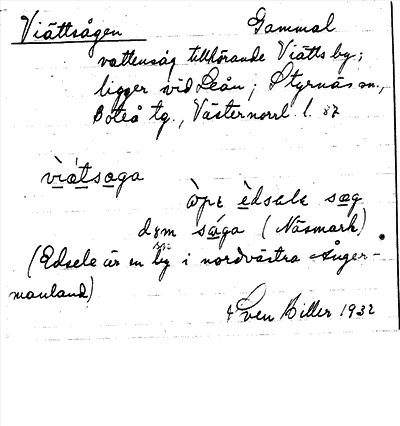 Viättsågen Gammal
vattensåg tillhörande Viätts by;
ligger vid Leån; Styrnäs sn,
Boteå tg., Västernorrl. l. 37
vìátsaga
òpε èdsele sæg
dɷm sága (Näsmark)
(Edsele är en by i nordvästra Ånger-
manland)
Sven Biller 1932